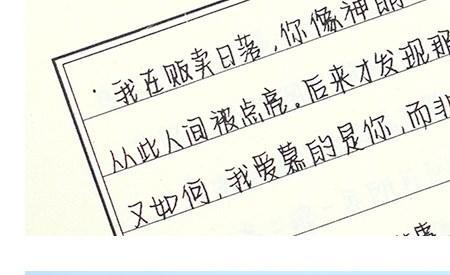 ·我在贩卖日落，你像神明
从此人间被点亮。后来才发现那
又如何，我爱慕的是你，而非